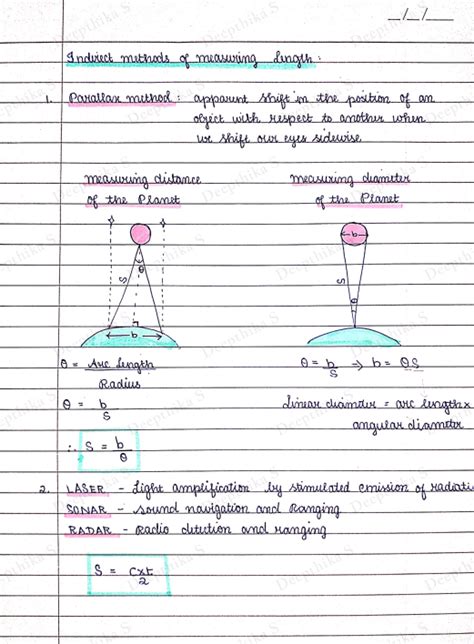 _/_/__
Indirect methods of measuring length:
1. Parallax method : apparent shift in the position of an
object with respect to another when
we shift our eyes sidewise.
measuring distance
of the Planet
measuring diameter
of the Planet
b
θ
S
b
S
θ
θ = Arc length
Radius
θ = b/S → b = θS
θ = b/S
Linear diameter = arc length ×
angular diameter
∴ S = b/θ
2. LASER - Light amplification by stimulated emission of radiati
SONAR - sound navigation and Ranging
RADAR - Radio detection and ranging
S = c×t/2
Deepthika S